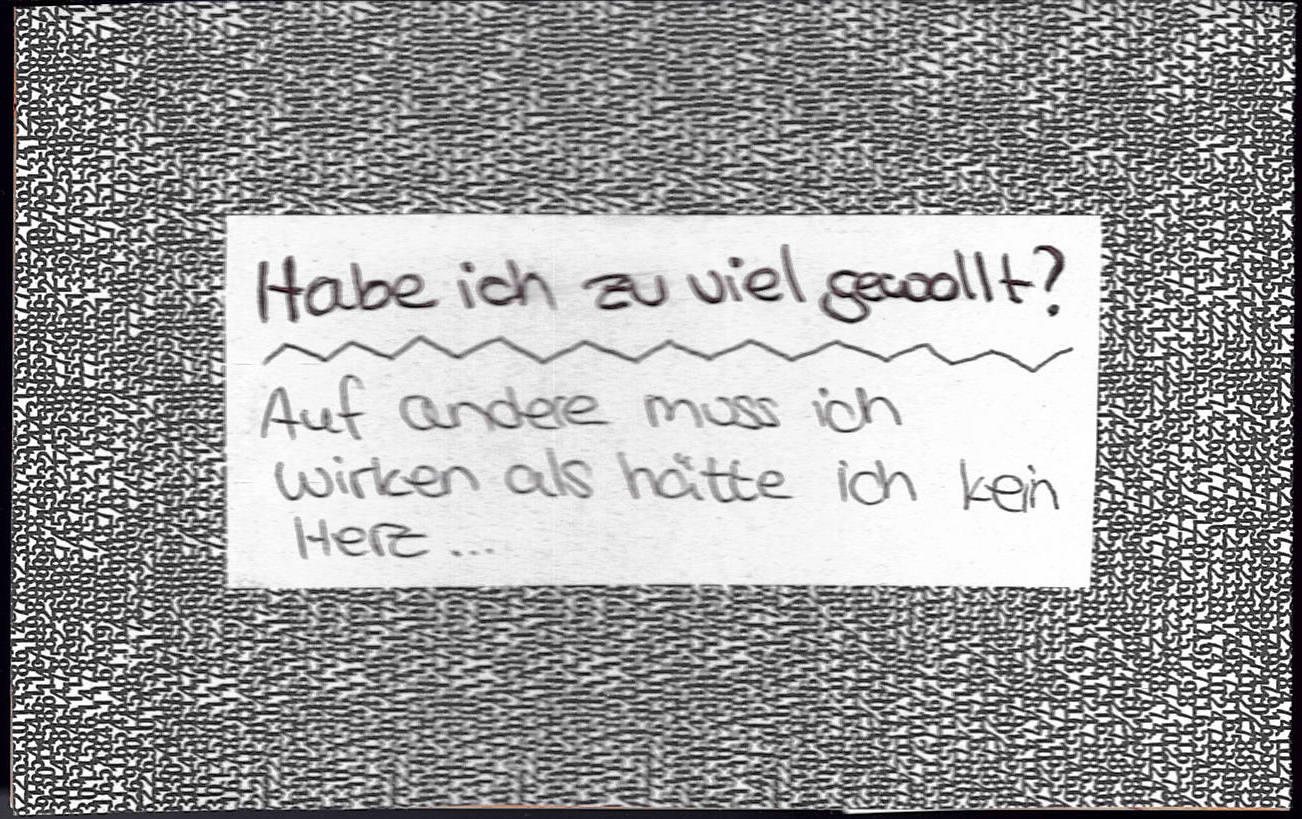 Habe ich zu viel gewollt?
Auf andere muss ich
wirken als hätte ich kein
Herz...